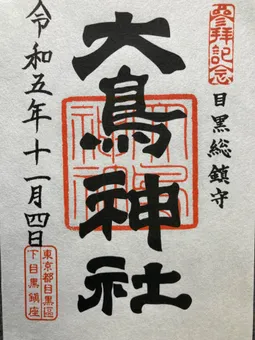 参拝記念
目黒総鎮守
大鳥神社
令和五年十一月四日
東京都目黒區
下目黒鎮座